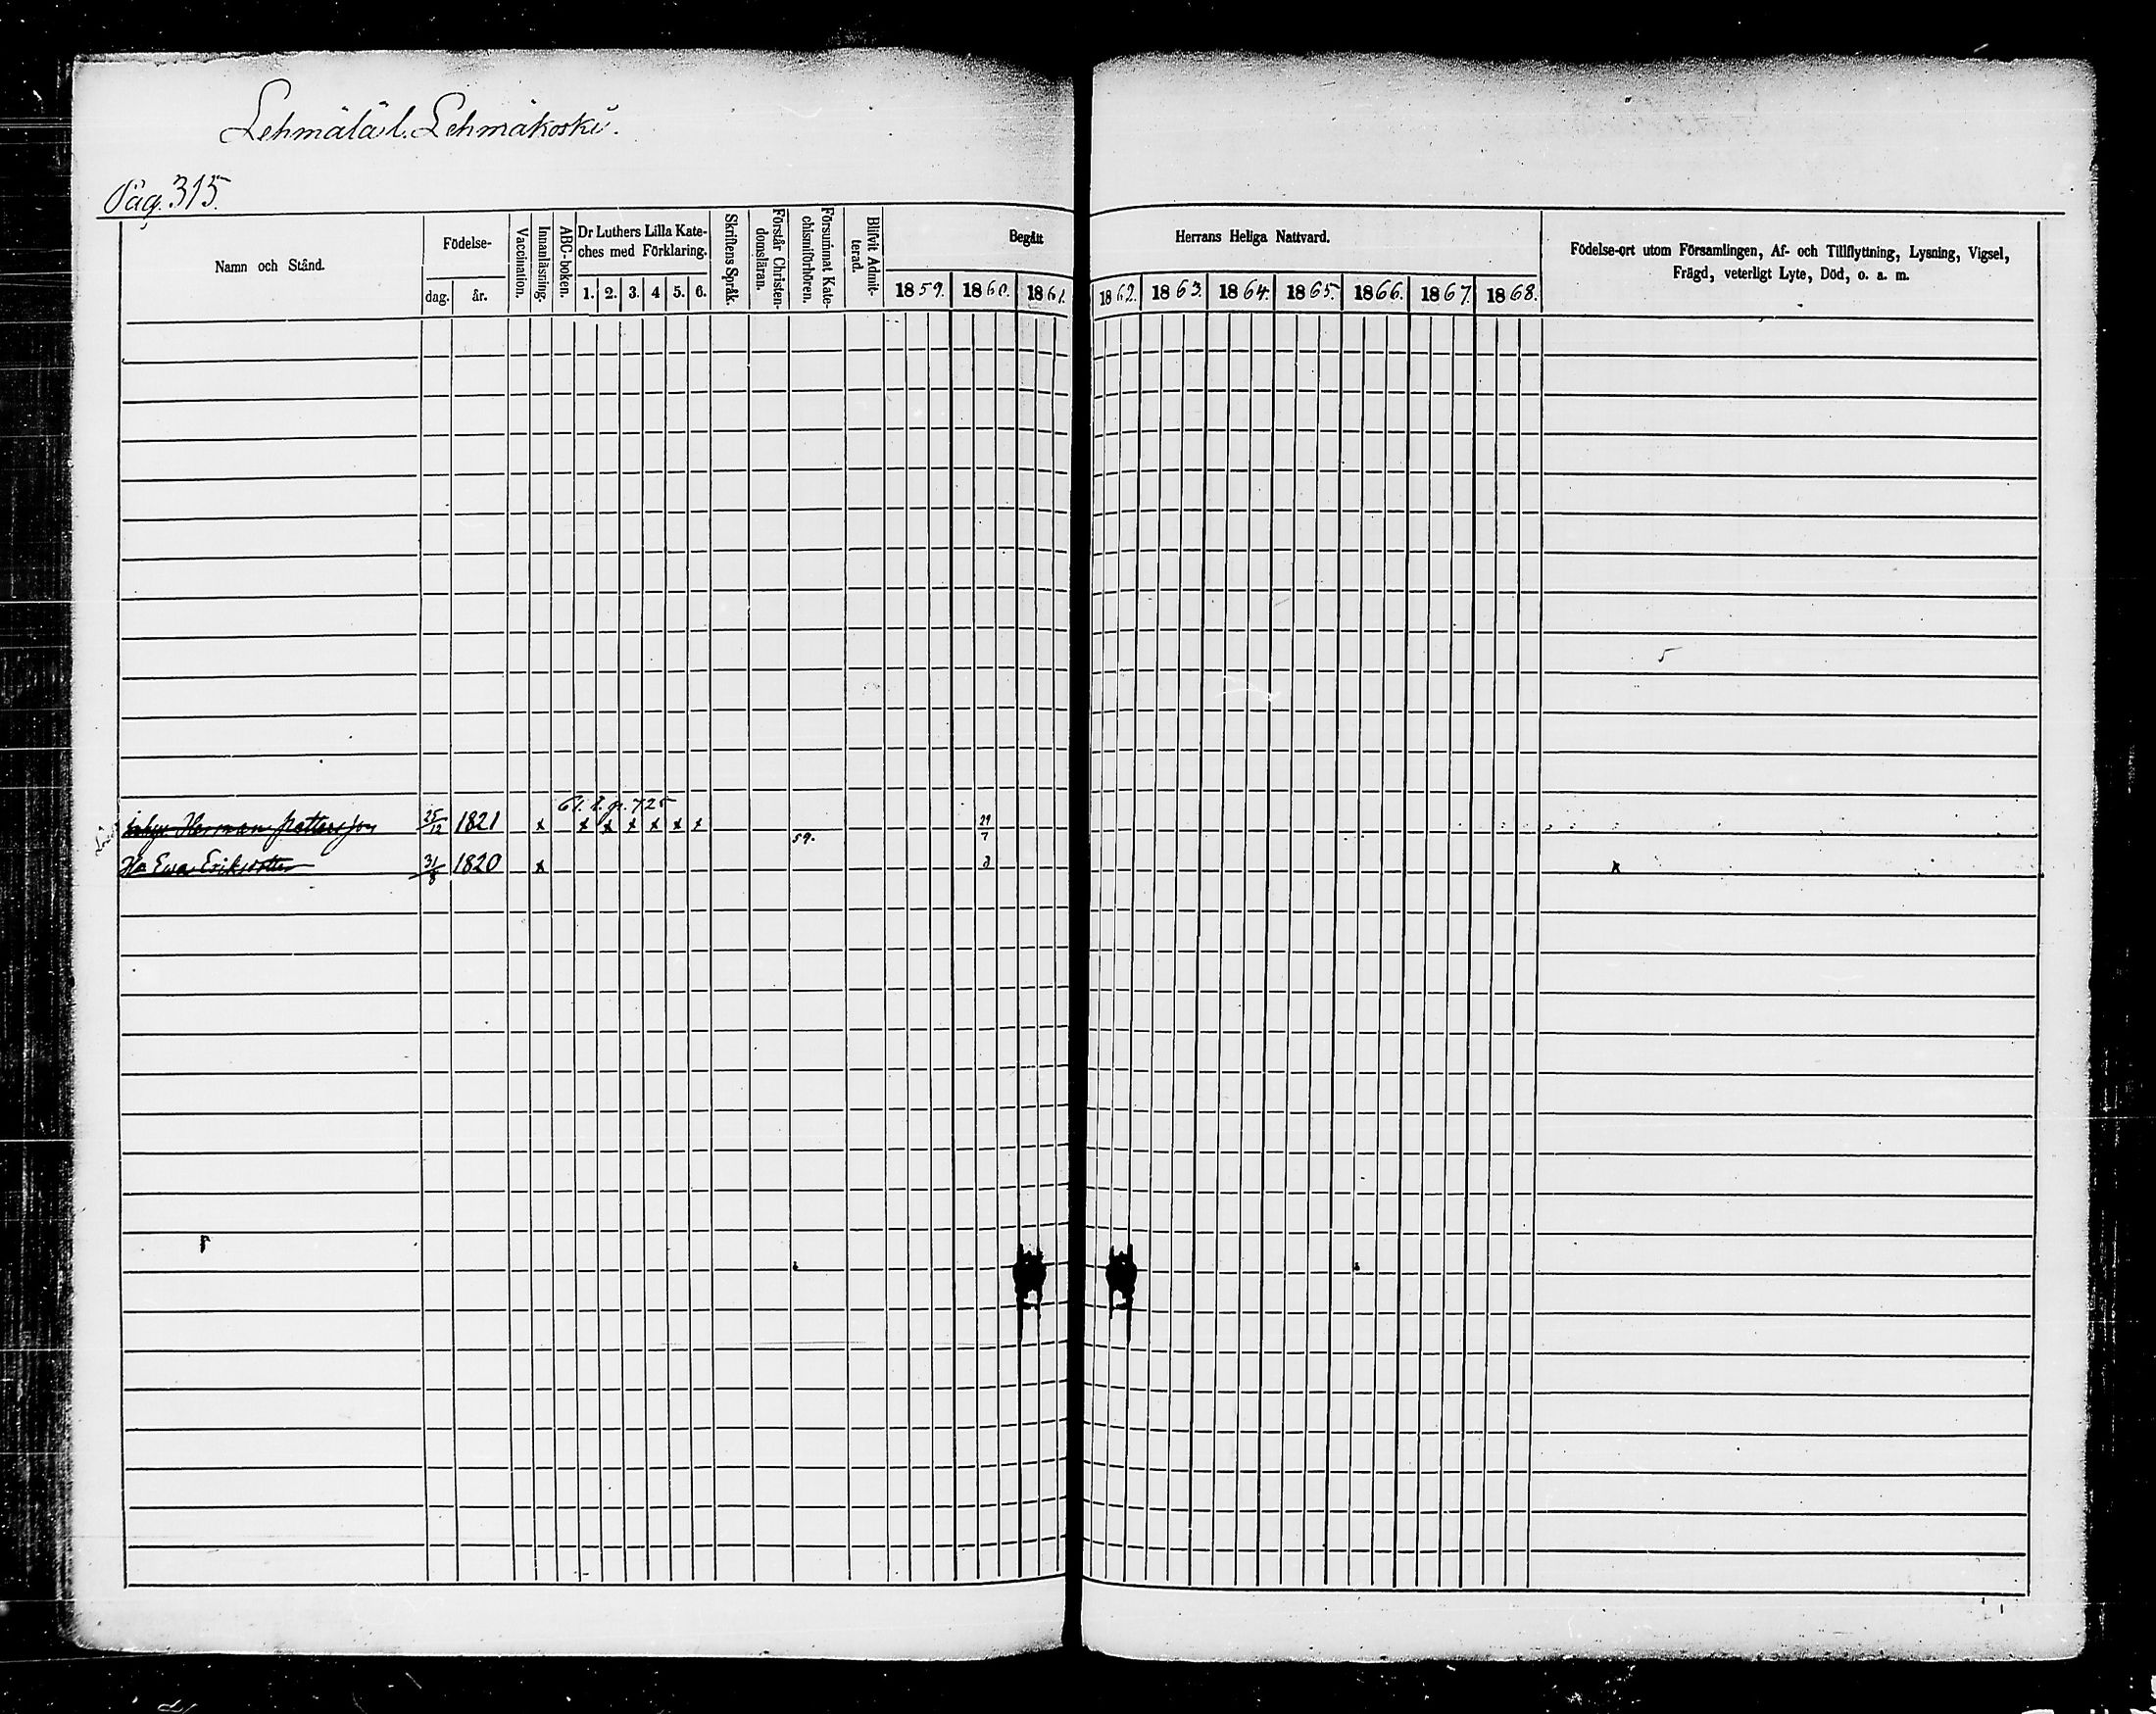 Lehmälä l. Lehmäkoski.
Pag. 315.
Namn och Stånd.
Födelse-
dag. år.
Vaccination.
Innanläsning.
ABC-boken.
Dr Luthers Lilla Kate-
ches med Förklaring.
1. 2. 3. 4 5. 6.
Skriftens Språk.
Förstår Christen-
domsläran.
Försummat Kate-
chismiförhören.
Blifvit Admit-
terad.
Begått Herrans Heliga Nattvard.
1859. 1860. 1861. 1862. 1863. 1864. 1865. 1866. 1867. 1868.
Födelse-ort utom Församlingen, Af- och Tillflyttning, Lysning, Vigsel,
Frägd, veterligt Lyte, Död, o. a. m.
5
61. p. 725
Herman 25/12 1821 x x x x x x x 59. 29/7
Hu Ewa Eriksdotter 31/8 1820 x 8